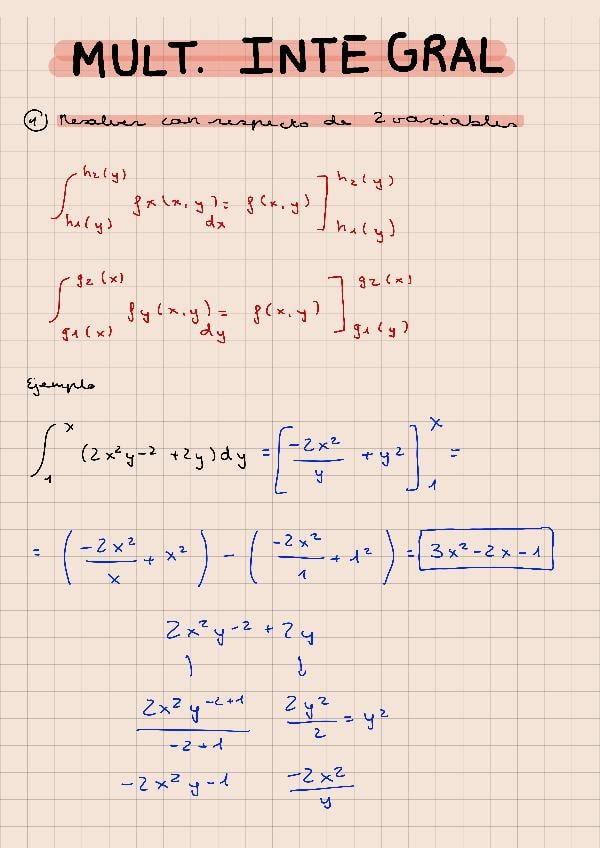 MULT. INTEGRAL
1) Resolver con respecto de 2 variables
∫_{h1(y)}^{h2(y)} fx(x, y) dx = f(x, y) ]_{h1(y)}^{h2(y)}
∫_{g1(x)}^{g2(x)} fy(x, y) dy = f(x, y) ]_{g1(y)}^{g2(x)}
Ejemplo
∫_1^x (2x²y⁻² + 2y) dy = [ -2x²/y + y² ]_1^x =
= ( -2x²/x + x² ) - ( -2x²/1 + 1² ) = 3x² - 2x - 1
2x²y⁻² + 2y
2x² y⁻²⁺¹/-2+1 2y²/2 = y²
-2x² y-1 -2x²/y